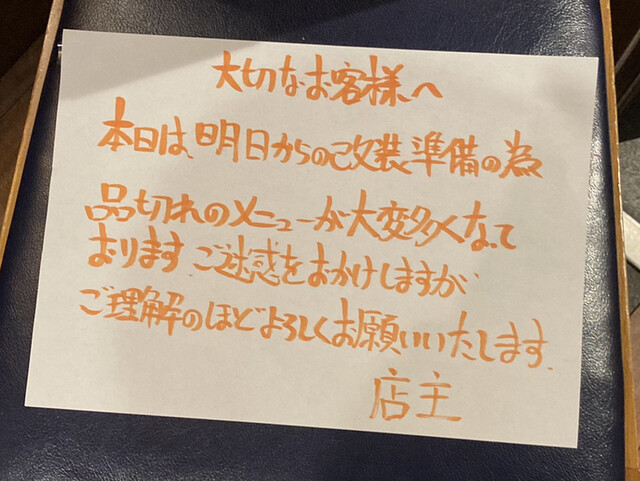 大切なお客様へ
本日は、明日からの改装準備の為
品切れのメニューが大変多くなって
おります。ご迷惑をおかけしますが
ご理解のほどよろしくお願いいたします。
店主